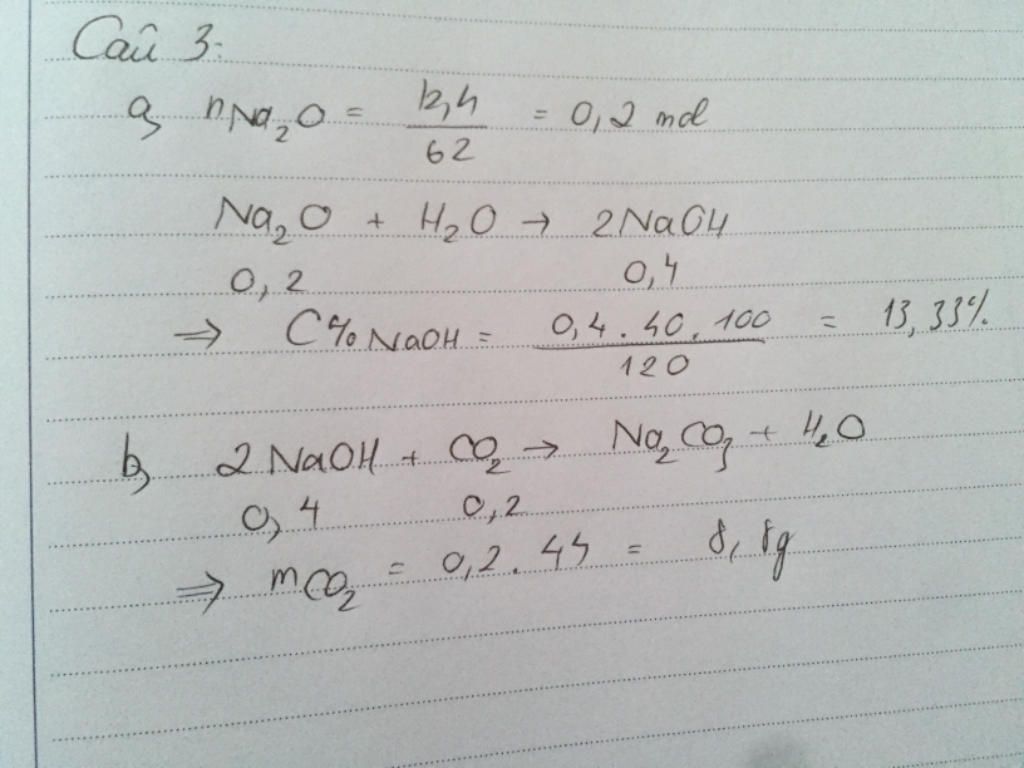 Câu 3:
a, nNa₂O = 12,4/62 = 0,2 mol
Na₂O + H₂O → 2NaOH
0,2 0,4
⇒ C% NaOH = 0,4 . 40 . 100/120 = 13,33%
b, 2NaOH + CO₂ → Na₂CO₃ + H₂O
0,4 0,2
⇒ mCO₂ = 0,2 . 44 = 8,8g